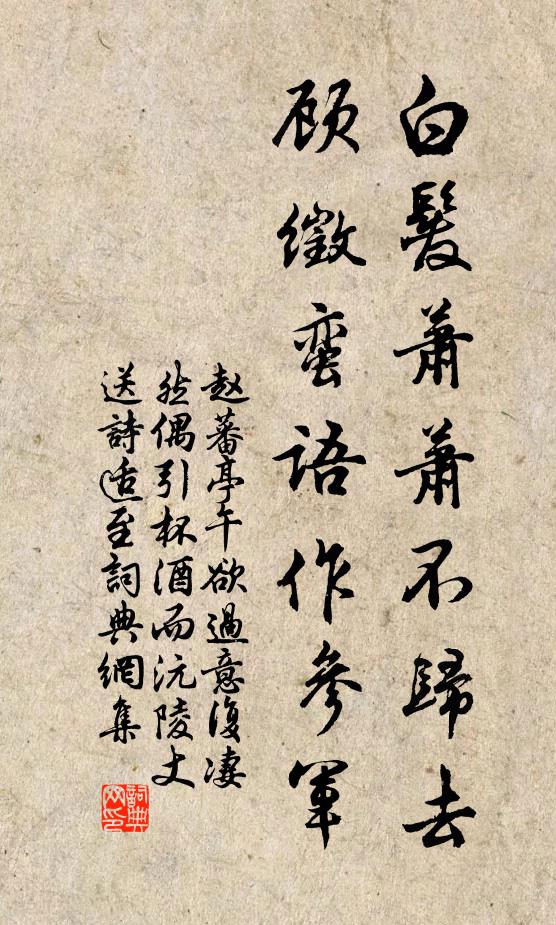 白髮蕭蕭不歸去
顧徵蛮語作參軍
赵蕃亭午欲過意復凄
然偶引杯酒而沅陵丈
送詩适至詞典網集
詞典
网印